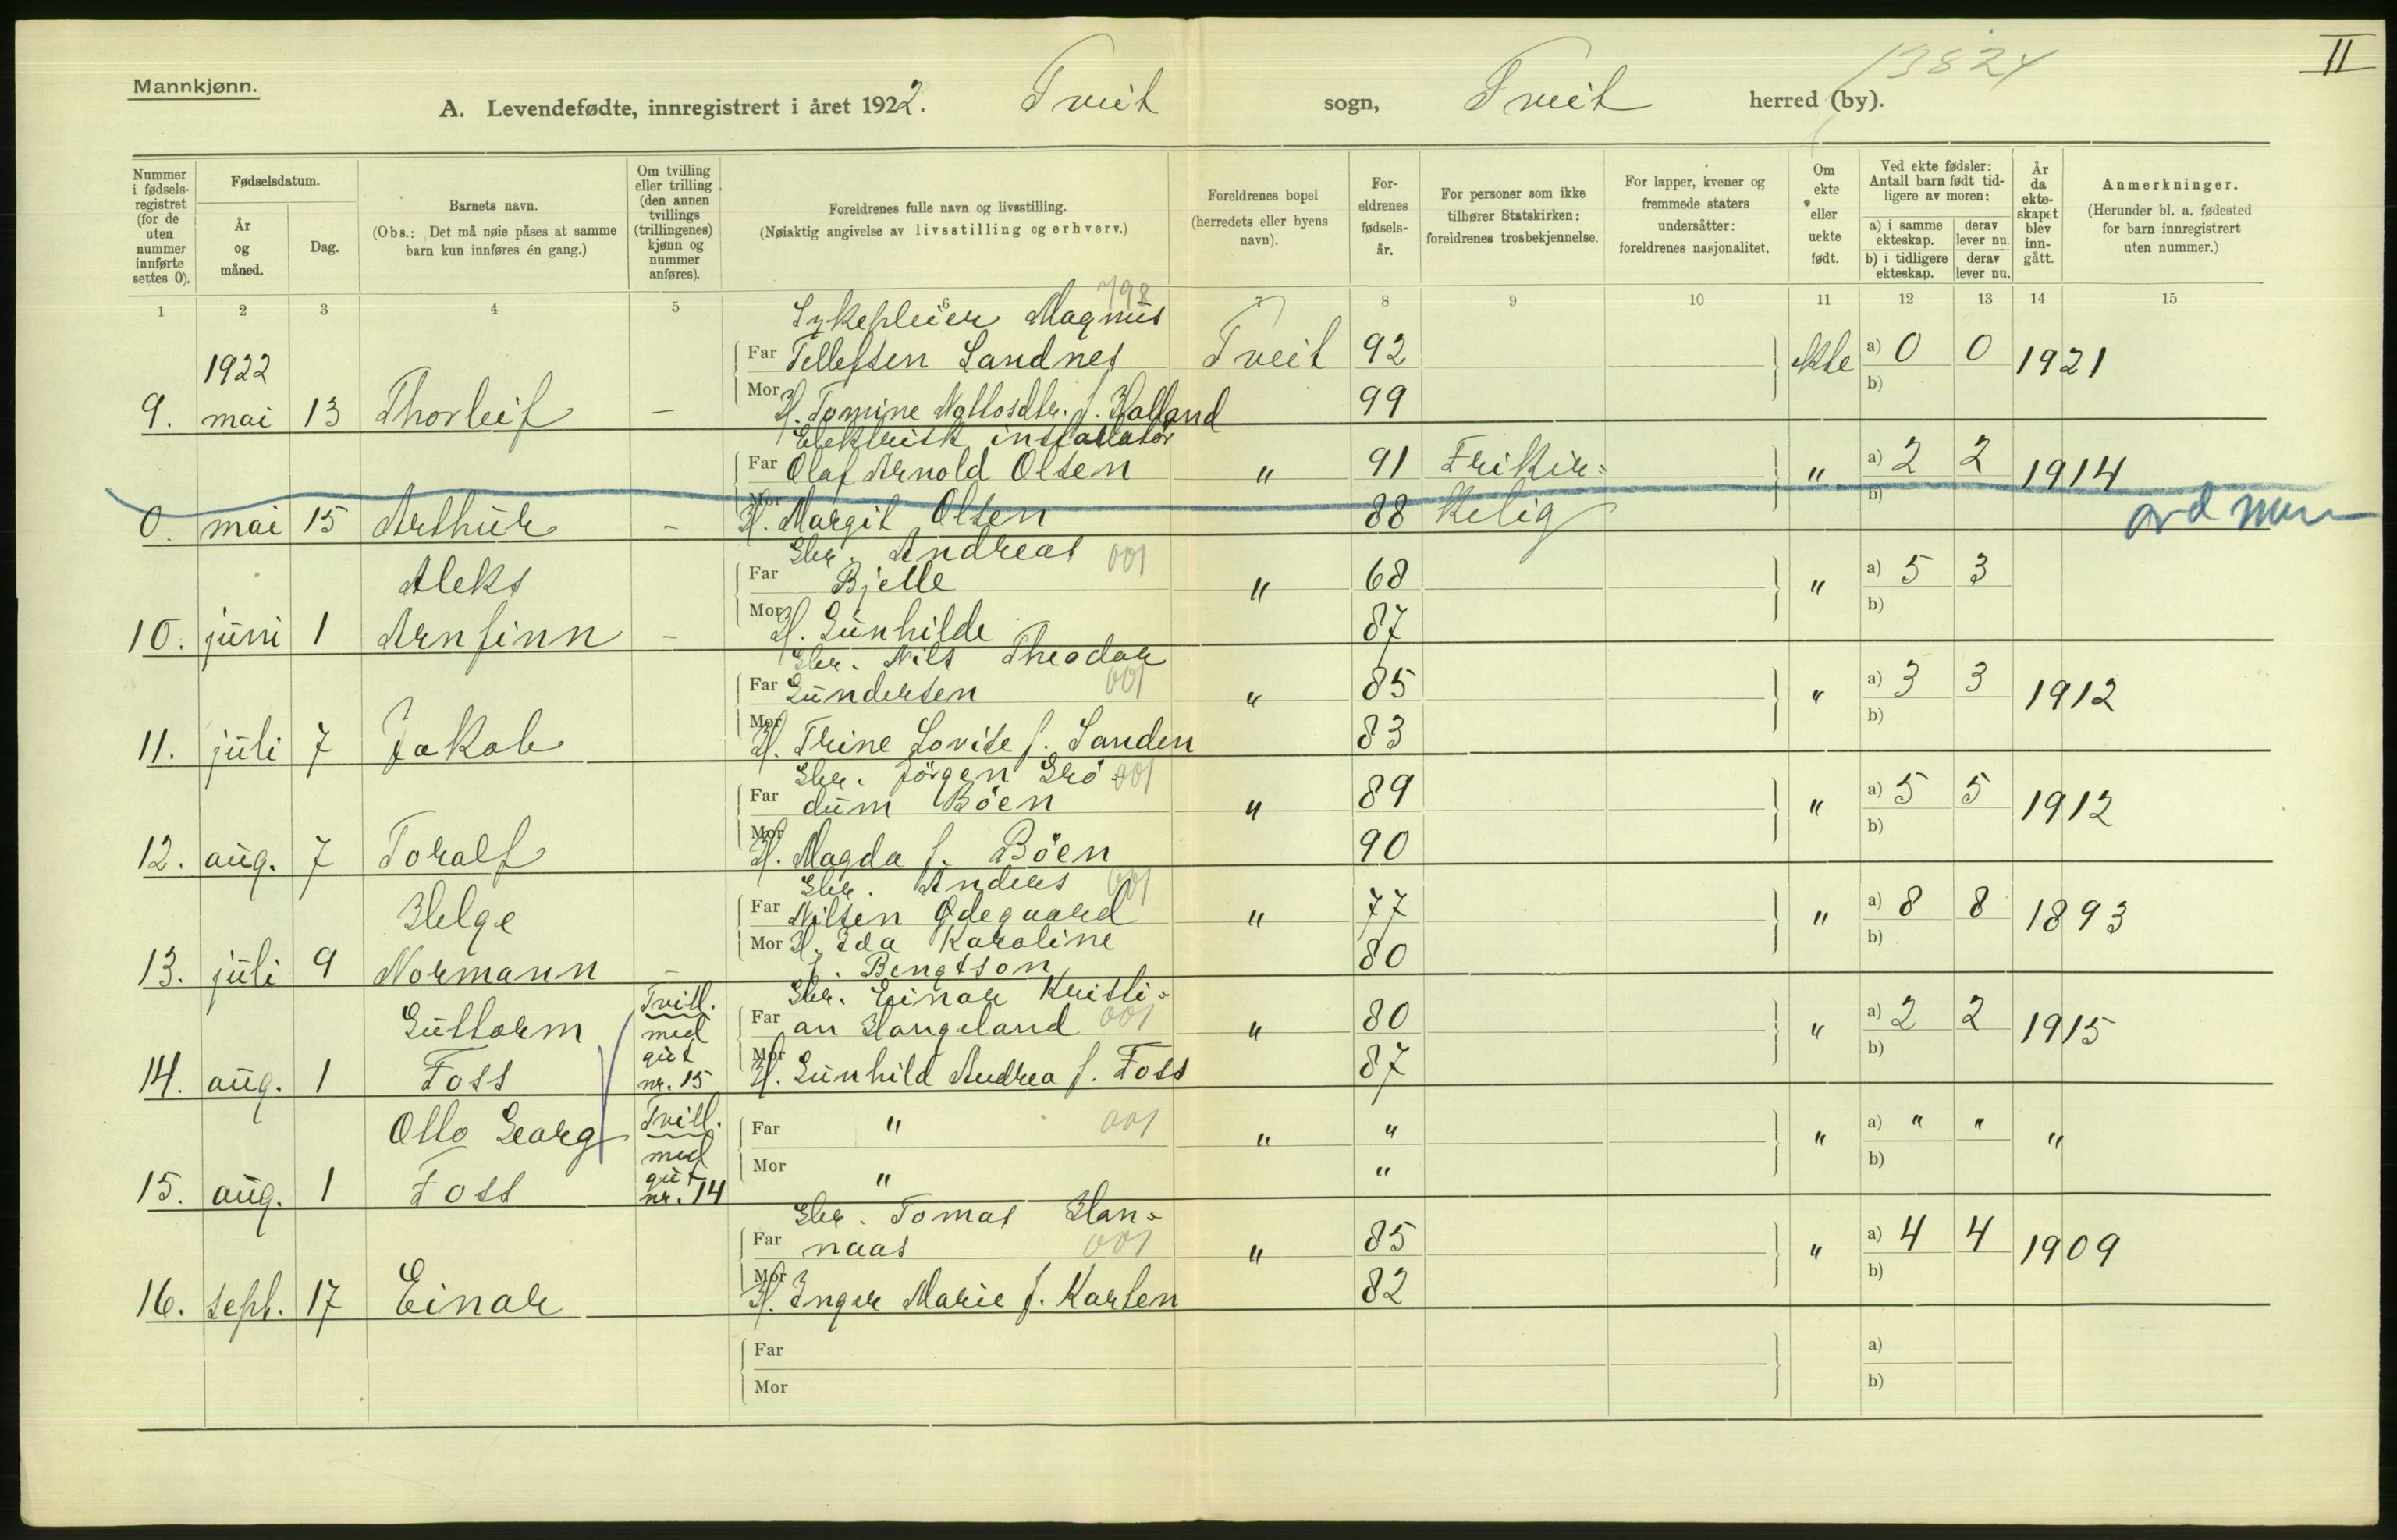 13824
II
Mannkjønn.
A. Levendefødte, innregistrert i året 1922. Tveit sogn, Tveit herred (by).
Nummer i fødsels-registret (for de uten nummer innførte settes 0).
Fødselsdatum.
År og måned.
Dag.
Barnets navn.
(Obs.: Det må nøie påses at samme barn kun innføres én gang.)
Om tvilling eller trilling (den annen tvillings (trillingenes) kjønn og nummer anføres).
Foreldrenes fulle navn og livsstilling.
(Nøiaktig angivelse av livsstilling og erhverv.)
Foreldrenes bopel
(herredets eller byens navn).
For-eldrenes fødsels-år.
For personer som ikke tilhører Statskirken: foreldrenes trosbekjennelse.
For lapper, kvener og fremmede staters undersåtter: foreldrenes nasjonalitet.
Om ekte eller uekte født.
Ved ekte fødsler: Antall barn født tid-ligere av moren:
a) i samme ekteskap. derav lever nu.
b) i tidligere ekteskap. derav lever nu.
År da ekte-skapet blev inn-gått.
Anmerkninger.
(Herunder bl. a. fødested for barn innregistrert uten nummer.)
1 2 3 4 5 6 7 8 9 10 11 12 13 14 15
798
Sykepleier Magnus
1922 Far Tellefsen Sandnes Tveit 92 ekte a) 0 0 1921
b)
9. mai 13 Thorleif – Mor H. Tomine Nottosdtr. f. Holland 99
Elektrisk installatør
Far Olaf Arnold Olsen " 91 Frikir= " a) 2 2 1914
b)
0. mai 15 Arthur – Mor H. Margit Olsen 88 kelig
Gbr. Andreas 001
Aleks Far Bjelle " 68 " a) 5 3
b)
10. juni 1 Arnfinn – Mor H. Gunhilde 87
Gbr. Nils Theodor
Far Gundersen 001 " 85 " a) 3 3 1912
b)
11. juli 7 Jakob Mor H. Trine Lovise f. Sanden 83
Gbr. Jörgen Grö= 001
Far dum Böen " 89 " a) 5 5 1912
b)
12. aug. 7 Toralf Mor H. Magda f. Böen 90
Gbr. Anders 001
Helge Far Nilsen Ødegaard " 77 " a) 8 8 1893
b)
13. juli 9 Normann – Mor H. Ida Karoline 80
f. Bengtson
Tvill. Gbr. Einar Kristi=
Guttorm med Far an Haugeland 001 " 80 " a) 2 2 1915
gut b)
14. aug. 1 Foss nr. 15 Mor H. Gunhild Andrea f. Foss 87
Otto Georg Tvill. Far " 001 " " " a) " " "
med b)
gut
15. aug. 1 Foss nr. 14 Mor " "
Gbr. Tomas Han=
Far naas 001 " 85 " a) 4 4 1909
b)
16. sept. 17 Einar Mor H. Inger Marie f. Karlsen 82
Far a)
Mor b)